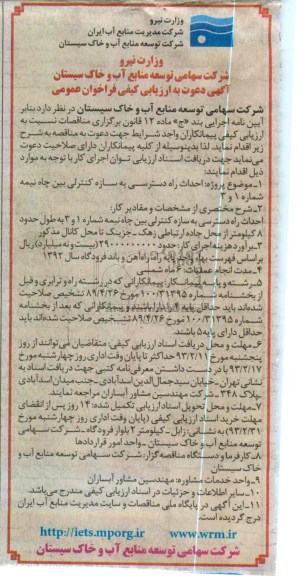 وزارت نیرو
شرکت مدیریت منابع آب ایران
شرکت توسعه منابع آب و خاک سیستان
وزارت نیرو
شرکت سهامی توسعه منابع آب و خاک سیستان
آگهی دعوت به ارزیابی کیفی فراخوان عمومی
شرکت سهامی توسعه منابع آب و خاک سیستان در نظر دارد بنابر
آیین نامه اجرایی بند «ج» ماده ۱۲ قانون برگزاری مناقصات نسبت به
ارزیابی کیفی پیمانکاران واجد شرایط جهت دعوت به مناقصه به شرح
زیر اقدام نماید. لذا بدینوسیله از کلیه پیمانکاران دارای صلاحیت دعوت
می‌نماید جهت دریافت اسناد ارزیابی توان اجرای کار با توجه به موارد
ذیل اقدام نمایند.
۱-موضوع پروژه: احداث راه دسترسی به سازه کنترلی بین چاه نیمه
شماره ۱ و ۲
۲-شرح مختصری از مشخصات و مقادیر کار:
احداث راه دسترسی به سازه کنترلی بین چاه نیمه شماره ۱ و ۳ به طول حدود
۸ کیلومتر از محل جاده ارتباطی زهک-جزینک تا محل کانال مذکور
۳-برآورد هزینه اجرای کار: حدود ۲۹۰۰۰۰۰۰۰۰۰ (بیست و نه میلیارد) ریال
براساس فهرست بهای واحد پایه راه، راه آهن و باند فرودگاه سال ۱۳۹۲
۴-مدت انجام عملیات: ۶ ماه شمسی
۵-رشته و پایه پیمانکار: پیمانکارانی که در رشته راه و ترابری و قبل
از بخشنامه شماره ۱۰۰/۳۱۳۹۵ مورخ ۸۹/۴/۲۶ تشخیص صلاحیت
شده‌اند باید حداقل پایه ۴ را دارا باشند و پیمانکارانی که بعد از بخشنامه
شماره ۱۰۰/۳۱۳۹۵ مورخ ۸۹/۴/۲۶ تشخیص صلاحیت شده‌اند باید
حداقل دارای پایه ۵ باشند.
۶-مهلت و محل دریافت اسناد ارزیابی کیفی: متقاضیان می‌توانند از روز
پنجشنبه مورخ ۹۳/۲/۱۱ حداکثر تا پایان وقت اداری روز چهارشنبه مورخ
۹۳/۲/۱۷ با در دست داشتن معرفی‌نامه کتبی جهت دریافت اسناد به
نشانی تهران-خیابان سیدجمال الدین اسدآبادی-جنب میدان اسدآبادی
-پلاک ۳۴۸-شرکت مهندسین مشاور آبساران مراجعه نمایند.
۷-مهلت و محل تحویل اسناد ارزیابی تکمیل شده: ۱۴ روز پس از انقضای
مهلت خرید اسناد ارزیابی کیفی (پایان وقت اداری روز چهارشنبه مورخ
۹۳/۲/۳۱) به نشانی: زابل-کیلومتر ۲ بلوار فرودگاه-شرکت سهامی
توسعه منابع آب و خاک سیستان-واحد امور قراردادها
۸-کارفرما و دستگاه مناقصه گزار: شرکت سهامی توسعه منابع آب و
خاک سیستان
۹-واحد خدمات مشاوره: مهندسین مشاور آبساران
۱۰-سایر اطلاعات و جزئیات در اسناد ارزیابی کیفی مندرج می‌باشد.
۱۱-این آگهی در پایگاه ملی مناقصات و سایت مدیریت منابع آب ایران
درج گردیده است.
http://iets.mporg.ir www.wrm.ir
شرکت سهامی توسعه منابع آب و خاک سیستان